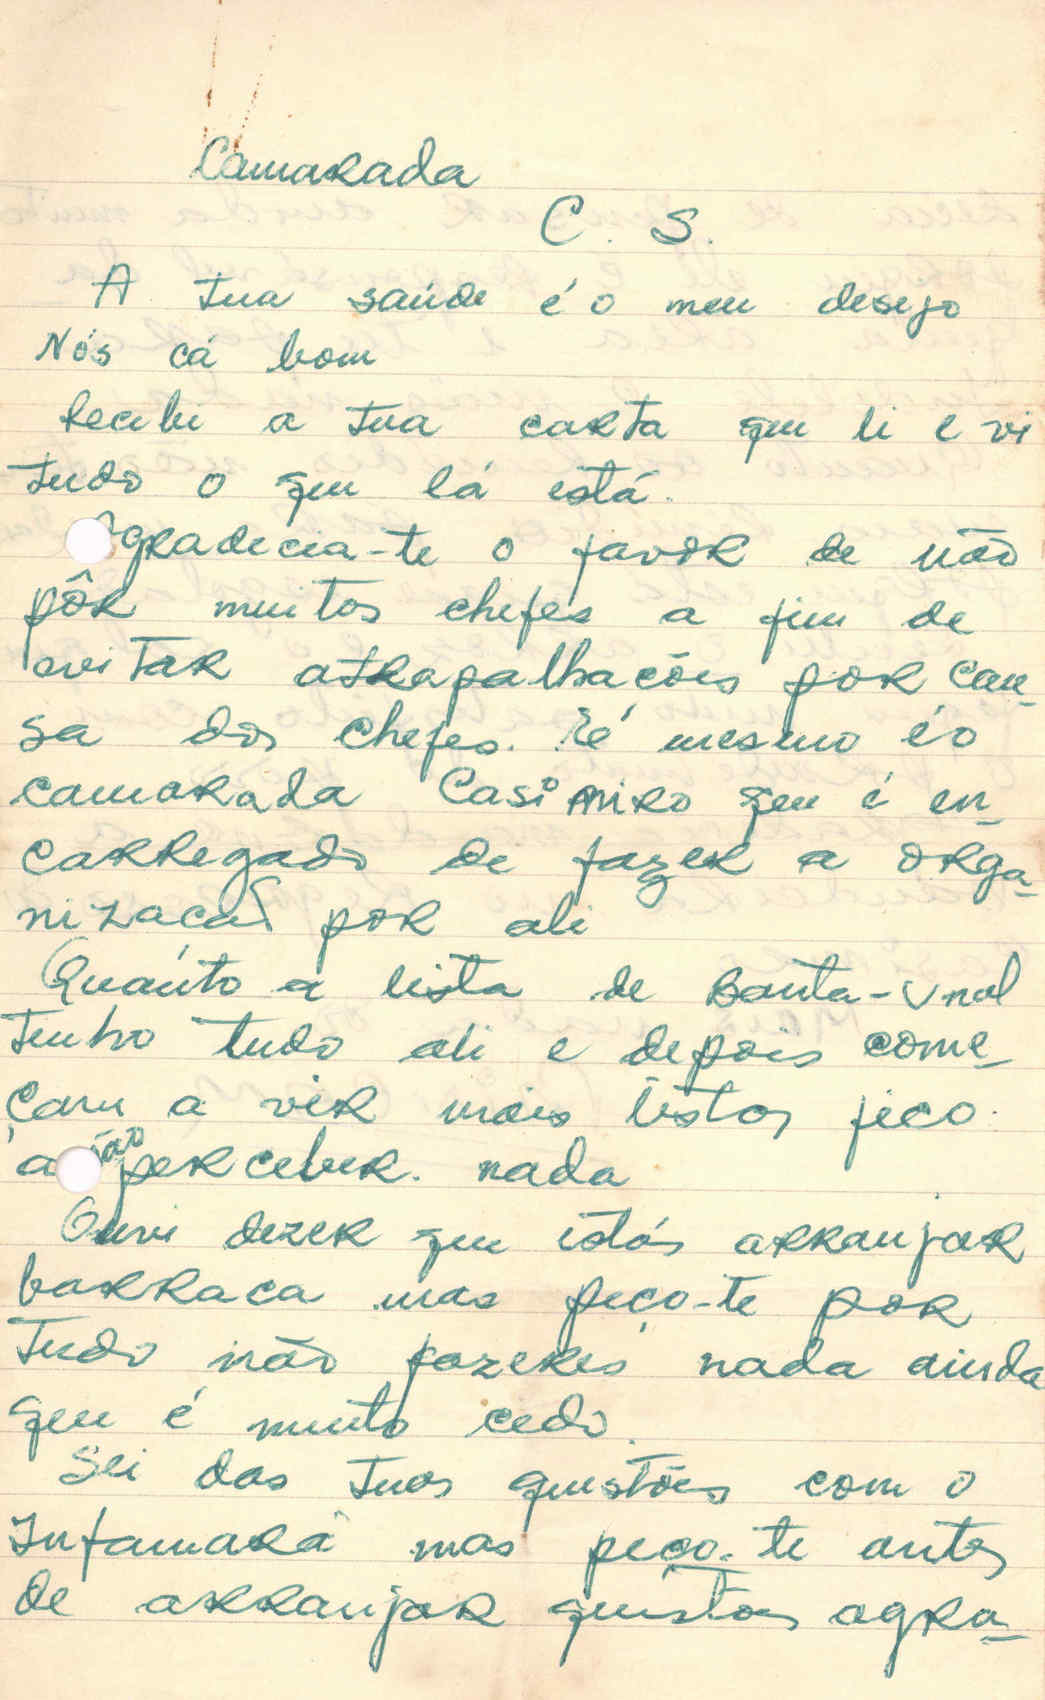 Camarada
C. S.
A tua saúde é o meu desejo
Nós cá bom
Recebi a tua carta que li e vi
tudo o que lá está.
Agradecia-te o favor de não
pôr muitos chefes a fim de
evitar atrapalhacões por cau-
sa dos chefes. Té mesmo é o
camarada Casimiro que é en-
carregado de fazer a orga-
nizacaõ por ali
Quanto a lista de Banta-Unal
tenho tudo ali e depois come-
çam a vir mais listas fico
a não perceber. nada
Ouvi dezer que estás arranjar
barraca mas peço-te por
tudo não fazeres nada ainda
que é muito cedo.
Sei das tuas questões com o
Infamará mas peço-te antes
de arranjar questões agra-